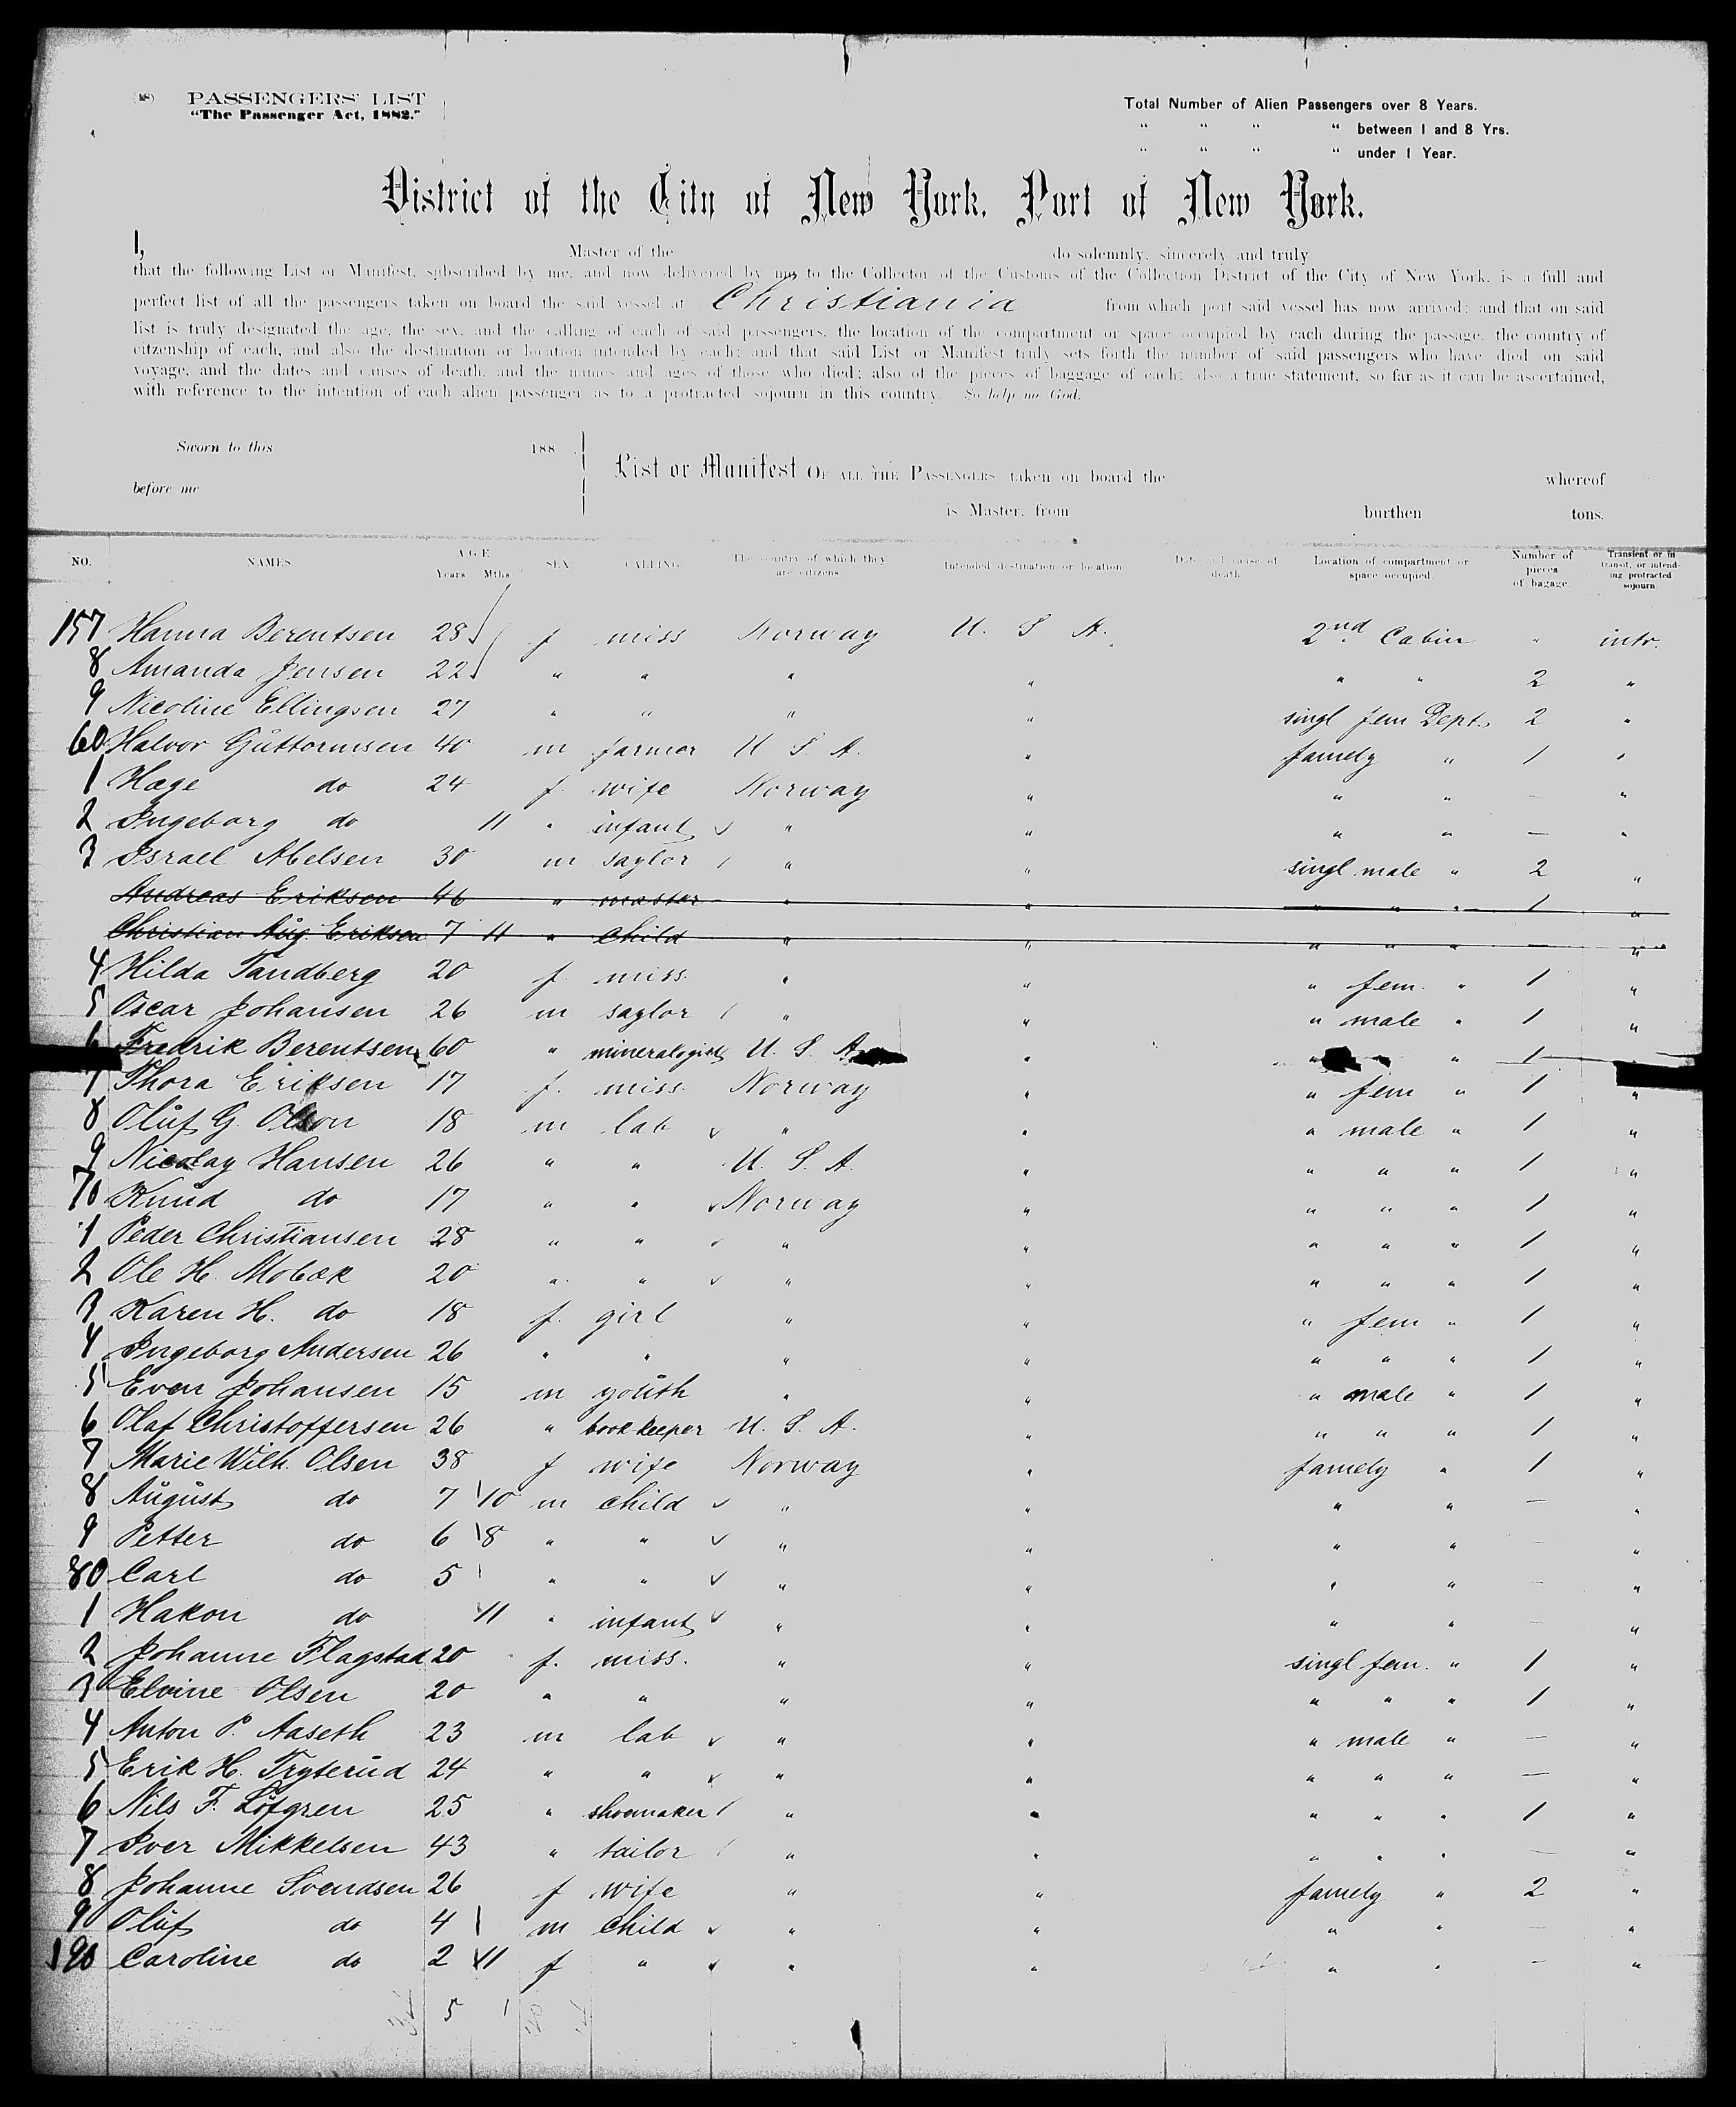 PASSENGERS' LIST
"The Passenger Act, 1882."
Total Number of Alien Passengers over 8 Years.
" " " " between 1 and 8 Yrs.
" " " " under 1 Year.
District of the City of New York, Port of New York.
I, Master of the do solemnly, sincerely and truly
that the following List or Manifest, subscribed by me, and now delivered by me to the Collector of the Customs of the Collection District of the City of New York, is a full and
perfect list of all the passengers taken on board the said vessel at Christiania from which port said vessel has now arrived; and that on said
list is truly designated the age, the sex, and the calling of each of said passengers, the location of the compartment or space occupied by each during the passage, the country of
citzenship of each, and also the destination or location intended by each; and that said List or Manifest truly sets forth the number of said passengers who have died on said
voyage, and the dates and causes of death, and the names and ages of those who died; also of the pieces of baggage of each; also a true statement, so far as it can be ascertained,
with reference to the intention of each alien passenger as to a protracted sojourn in this country. So help me God.
Sworn to this 188
List or Manifest OF ALL THE PASSENGERS taken on board the whereof
before me
is Master, from burthen tons.
NO. NAMES AGE Years Mths SEX CALLING The country of which they are citizens Intended destination or location Date and cause of death Location of compartment or space occupied Number of pieces of bagage Transient or in transit, or intending protracted sojourn
157 Hanna Berentsen 28 f miss Norway U. S. A. 2nd Cabin " intr.
8 Amanda Jensen 22 " " " " " " 2 "
9 Nicoline Ellingsen 27 " " " " singl fem Dept. 2 "
60 Halvor Guttormsen 40 m farmer U. S. A. " famely " 1 "
1 Hæge do 24 f. wife Norway " " " — "
2 Ingeborg do 11 " infant " " " " — "
3 Israel Abelsen 30 m saylor " " singl male " 2 "
Andreas Eriksen 46 " master " " " " " 1 "
Christian Aug. Eriksen 7 11 " child " " " " " — "
4 Hilda Tandberg 20 f. miss. " " " fem. " 1 "
5 Oscar Johansen 26 m saylor " " " male " 1 "
6 Fredrik Berentsen 60 " mineralogist U. S. A. " " " 1
7 Thora Eriksen 17 f. miss. Norway " " fem " 1 "
8 Oluf G. Olson 18 m lab " " " male " 1 "
9 Nicolay Hansen 26 " " U. S. A. " " " " 1 "
70 Knud do 17 " " Norway " " " " 1 "
1 Peder Christiansen 28 " " " " " " " 1 "
2 Ole H. Mobæk 20 " " " " " " " 1 "
3 Karen H. do 18 f. girl " " " fem " 1 "
4 Ingeborg Andersen 26 " " " " " " " 1 "
5 Even Johansen 15 m youth " " " male " 1 "
6 Olaf Christoffersen 26 " bookkeeper U. S. A. " " " " 1 "
7 Marie Wilh. Olsen 38 f wife Norway " famely " 1 "
8 August do 7 10 m child " " " " — "
9 Petter do 6 8 " " " " " " — "
80 Carl do 5 " " " " " " — "
1 Hakon do 11 " infant " " " " — "
2 Johanne Flagstad 20 f. miss. " " singl fem. " 1 "
3 Elvine Olsen 20 " " " " " " " 1 "
4 Anton P. Aaseth 23 m lab " " " male " — "
5 Erik H. Tryterud 24 " " " " " " " — "
6 Nils F. Löfgren 25 " shoemaker " " " " " 1 "
7 Iver Mikkelsen 43 " tailor " " " " " — "
8 Johanne Svendsen 26 f wife " " famely " 2 "
9 Oluf do 4 m child " " " " — "
190 Caroline do 2 11 f " " " " " — "
5 1